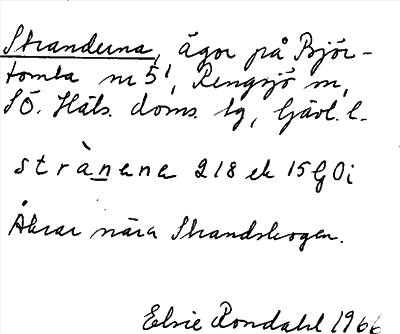 Stranderna, ägor på Björ-
tomta nr 5¹, Rengsjö sn,
SÖ. Häls. doms. tg, Gävl. l.
strànana 218 ek 15 G Oi
Åkrar nära Strandskogen.
Elsie Rondahl 1966